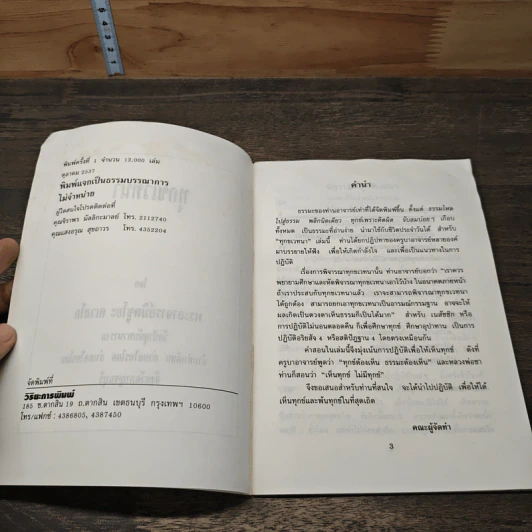 พิมพ์ครั้งที่ 1 จำนวน 13,000 เล่ม
ตุลาคม 2537
พิมพ์แจกเป็นธรรมบรรณาการ
ไม่จำหน่าย
ผู้ใดสนใจโปรดติดต่อที่
คุณจิราพร มัลลิกะมาลย์ โทร. 2112740
คุณแสงอรุณ สุขถาวร โทร. 4352204
จัดพิมพ์ที่
วิริยะการพิมพ์
185 ซ.ตากสิน 19 ถ.ตากสิน เขตธนบุรี กรุงเทพฯ 10600
โทร/แฟกซ์ : 4386805, 4387450
คำนำ
ธรรมะของท่านอาจารย์เท่าที่ได้จัดพิมพ์ขึ้น ตั้งแต่ ธรรมไหล
ไปสู่ธรรม พลิกนิดเดียว ทุกข์เพราะคิดผิด จับสมบ่อยๆ เกือบ
ทั้งหมด เป็นธรรมะที่อ่านง่าย นำมาใช้กับชีวิตประจำวันได้ สำหรับ
"ทุกขเวทนา" เล่มนี้ ท่านได้ยกปฏิปทาของครูบาอาจารย์หลายองค์
มาบรรยายให้ฟัง เพื่อให้เกิดกำลังใจ และเพื่อเป็นแนวทางในการ
ปฏิบัติ
เรื่องการพิจารณาทุกขเวทนานั้น ท่านอาจารย์บอกว่า "เราควร
พยายามศึกษาและหัดพิจารณาทุกขเวทนาเอาไว้บ้าง ในอนาคตภายหน้า
ถ้าเราประสบกับทุกขเวทนาแล้ว เราจะสามารถพิจารณาทุกขเวทนา
ได้ถูกต้อง สามารถยกเอาทุกขเวทนาเป็นอารมณ์กรรมฐาน อาจจะให้
ผลเกิดเป็นดวงตาเห็นธรรมก็เป็นได้มาก" สำหรับ เนสัชชิก หรือ
การปฏิบัติไม่นอนตลอดคืน ก็เพื่อศึกษาทุกข์ ศึกษาอุปาทาน เป็นการ
ปฏิบัติอริยสัจ 4 หรือสติปัฏฐาน 4 โดยตรงเหมือนกัน
คำสอนในเล่มนี้จึงมุ่งเน้นการปฏิบัติเพื่อให้เห็นทุกข์ ดังที่
ครูบาอาจารย์พูดว่า "ทุกข์ต้องเห็น ธรรมะต้องเห็น" และหลวงพ่อชา
ท่านก็สอนว่า "เห็นทุกข์ ไม่มีทุกข์"
จึงขอเสนอสำหรับท่านที่สนใจ จะได้นำไปปฏิบัติ เพื่อให้ได้
เห็นทุกข์และพ้นทุกข์ในที่สุดเถิด
คณะผู้จัดทำ
3